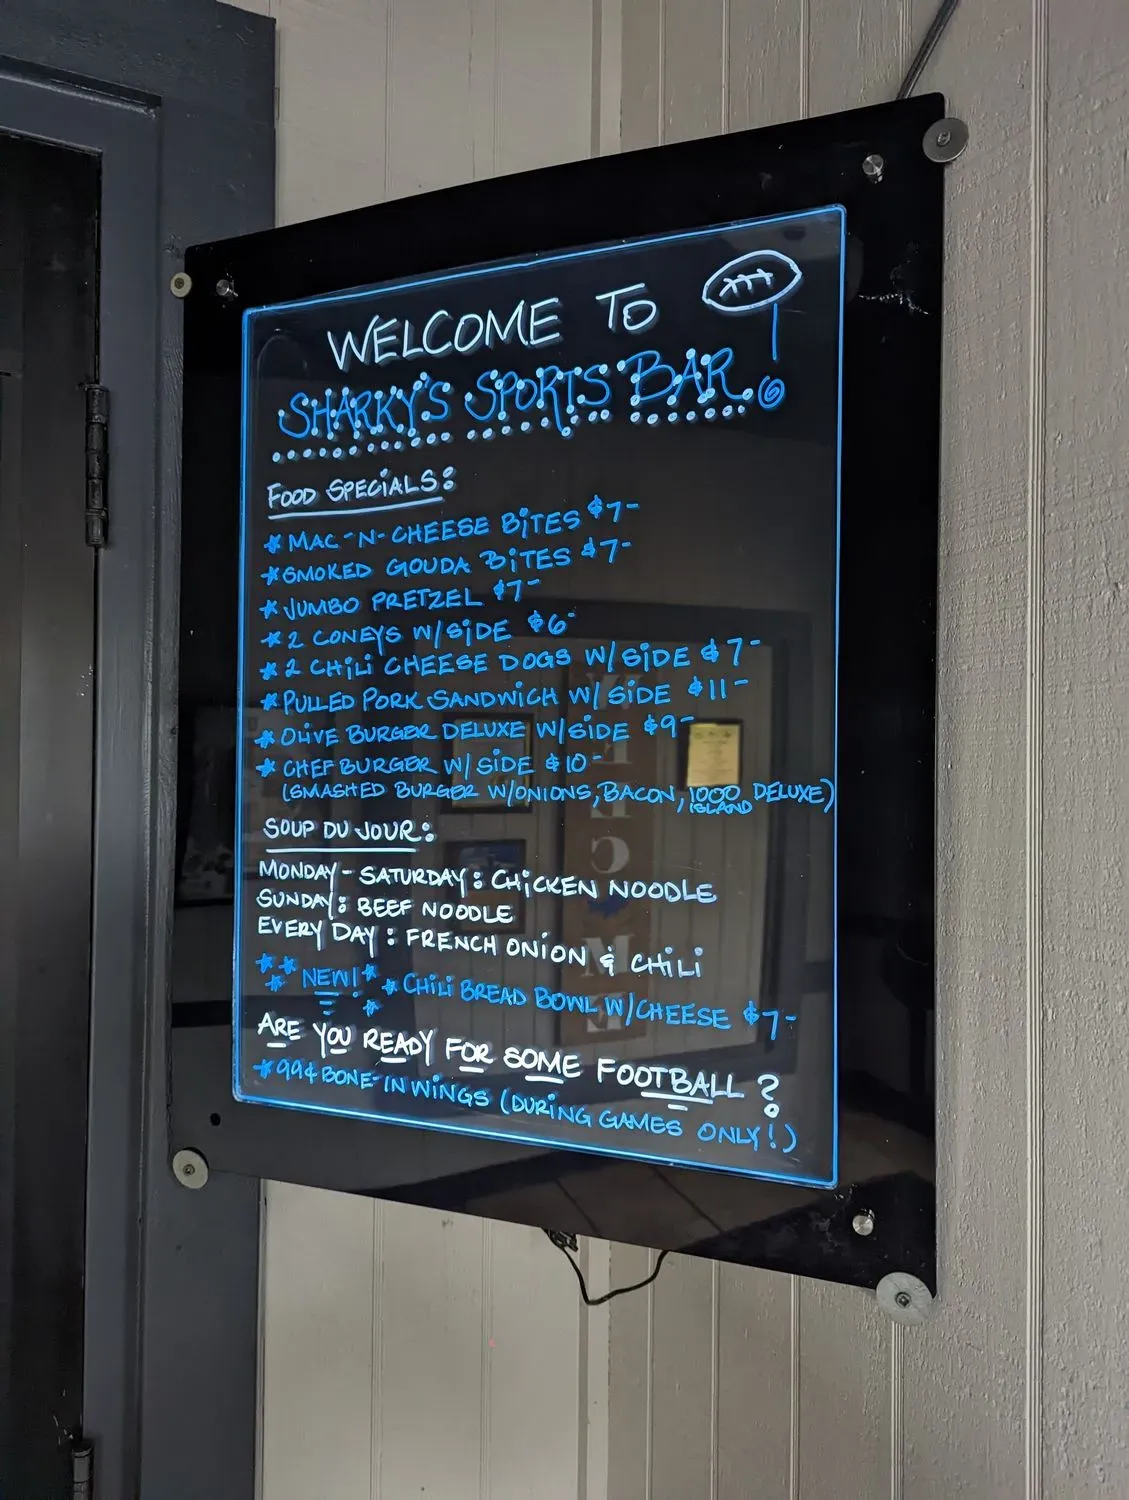 WELCOME TO
SHARKY'S SPORTS BAR!
FOOD SPECIALS:
* MAC-N-CHEESE BITES $7-
* SMOKED GOUDA BITES $7-
* JUMBO PRETZEL $7-
* 2 CONEYS W/SIDE $6-
* 2 CHILI CHEESE DOGS W/SIDE $7-
* PULLED PORK SANDWICH W/SIDE $11-
* OLIVE BURGER DELUXE W/SIDE $9-
* CHEF BURGER W/SIDE $10-
(SMASHED BURGER W/ONIONS, BACON, 1000 ISLAND DELUXE)
SOUP DU JOUR:
MONDAY - SATURDAY: CHICKEN NOODLE
SUNDAY: BEEF NOODLE
EVERY DAY: FRENCH ONION & CHILI
NEW! * CHILI BREAD BOWL W/CHEESE $7-
ARE YOU READY FOR SOME FOOTBALL?
* 99¢ BONE-IN WINGS (DURING GAMES ONLY!)